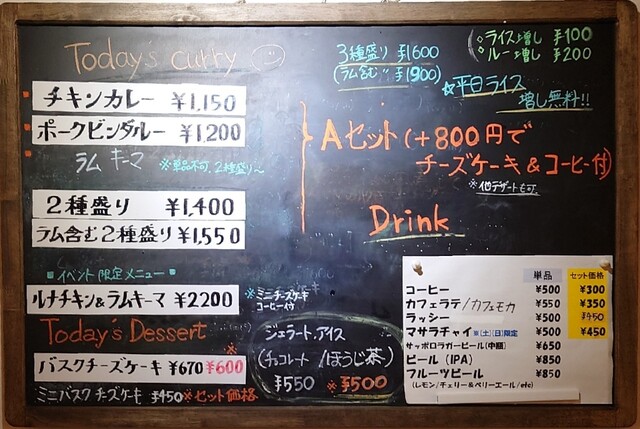 Today's curry
チキンカレー ¥1,150
ポークビンダルー ¥1,200
ラム キーマ ※単品不可、2種盛り〜
2種盛り ¥1,400
ラム含む2種盛り ¥1,550
3種盛り ¥1600
(ラム含む 〃 ¥1900)
◦ライス増し ¥100
◦ルー増し ¥200
☆平日ライス
増し無料!!
Aセット(+800円で
チーズケーキ&コーヒー付)
※他デザートも可
Drink
■イベント限定メニュー■
ルナチキン&ラムキーマ ¥2200
※ミニチーズケーキ
コーヒー付
Today's Dessert
バスクチーズケーキ ¥670 ※¥600
ミニバスク チーズケーキ ¥450 ※セット価格
ジェラート・アイス
(チョコレート/ほうじ茶)
¥550 ※¥500
単品 セット価格
コーヒー ¥500 ¥300
カフェラテ/カフェモカ ¥550 ¥350
ラッシー ¥500 ¥450
マサラチャイ ※(土)(日)限定 ¥500 ¥450
サッポロラガービール(中瓶) ¥650
ビール(IPA) ¥850
フルーツビール ¥850
(レモン/チェリー&ベリーエール/etc)